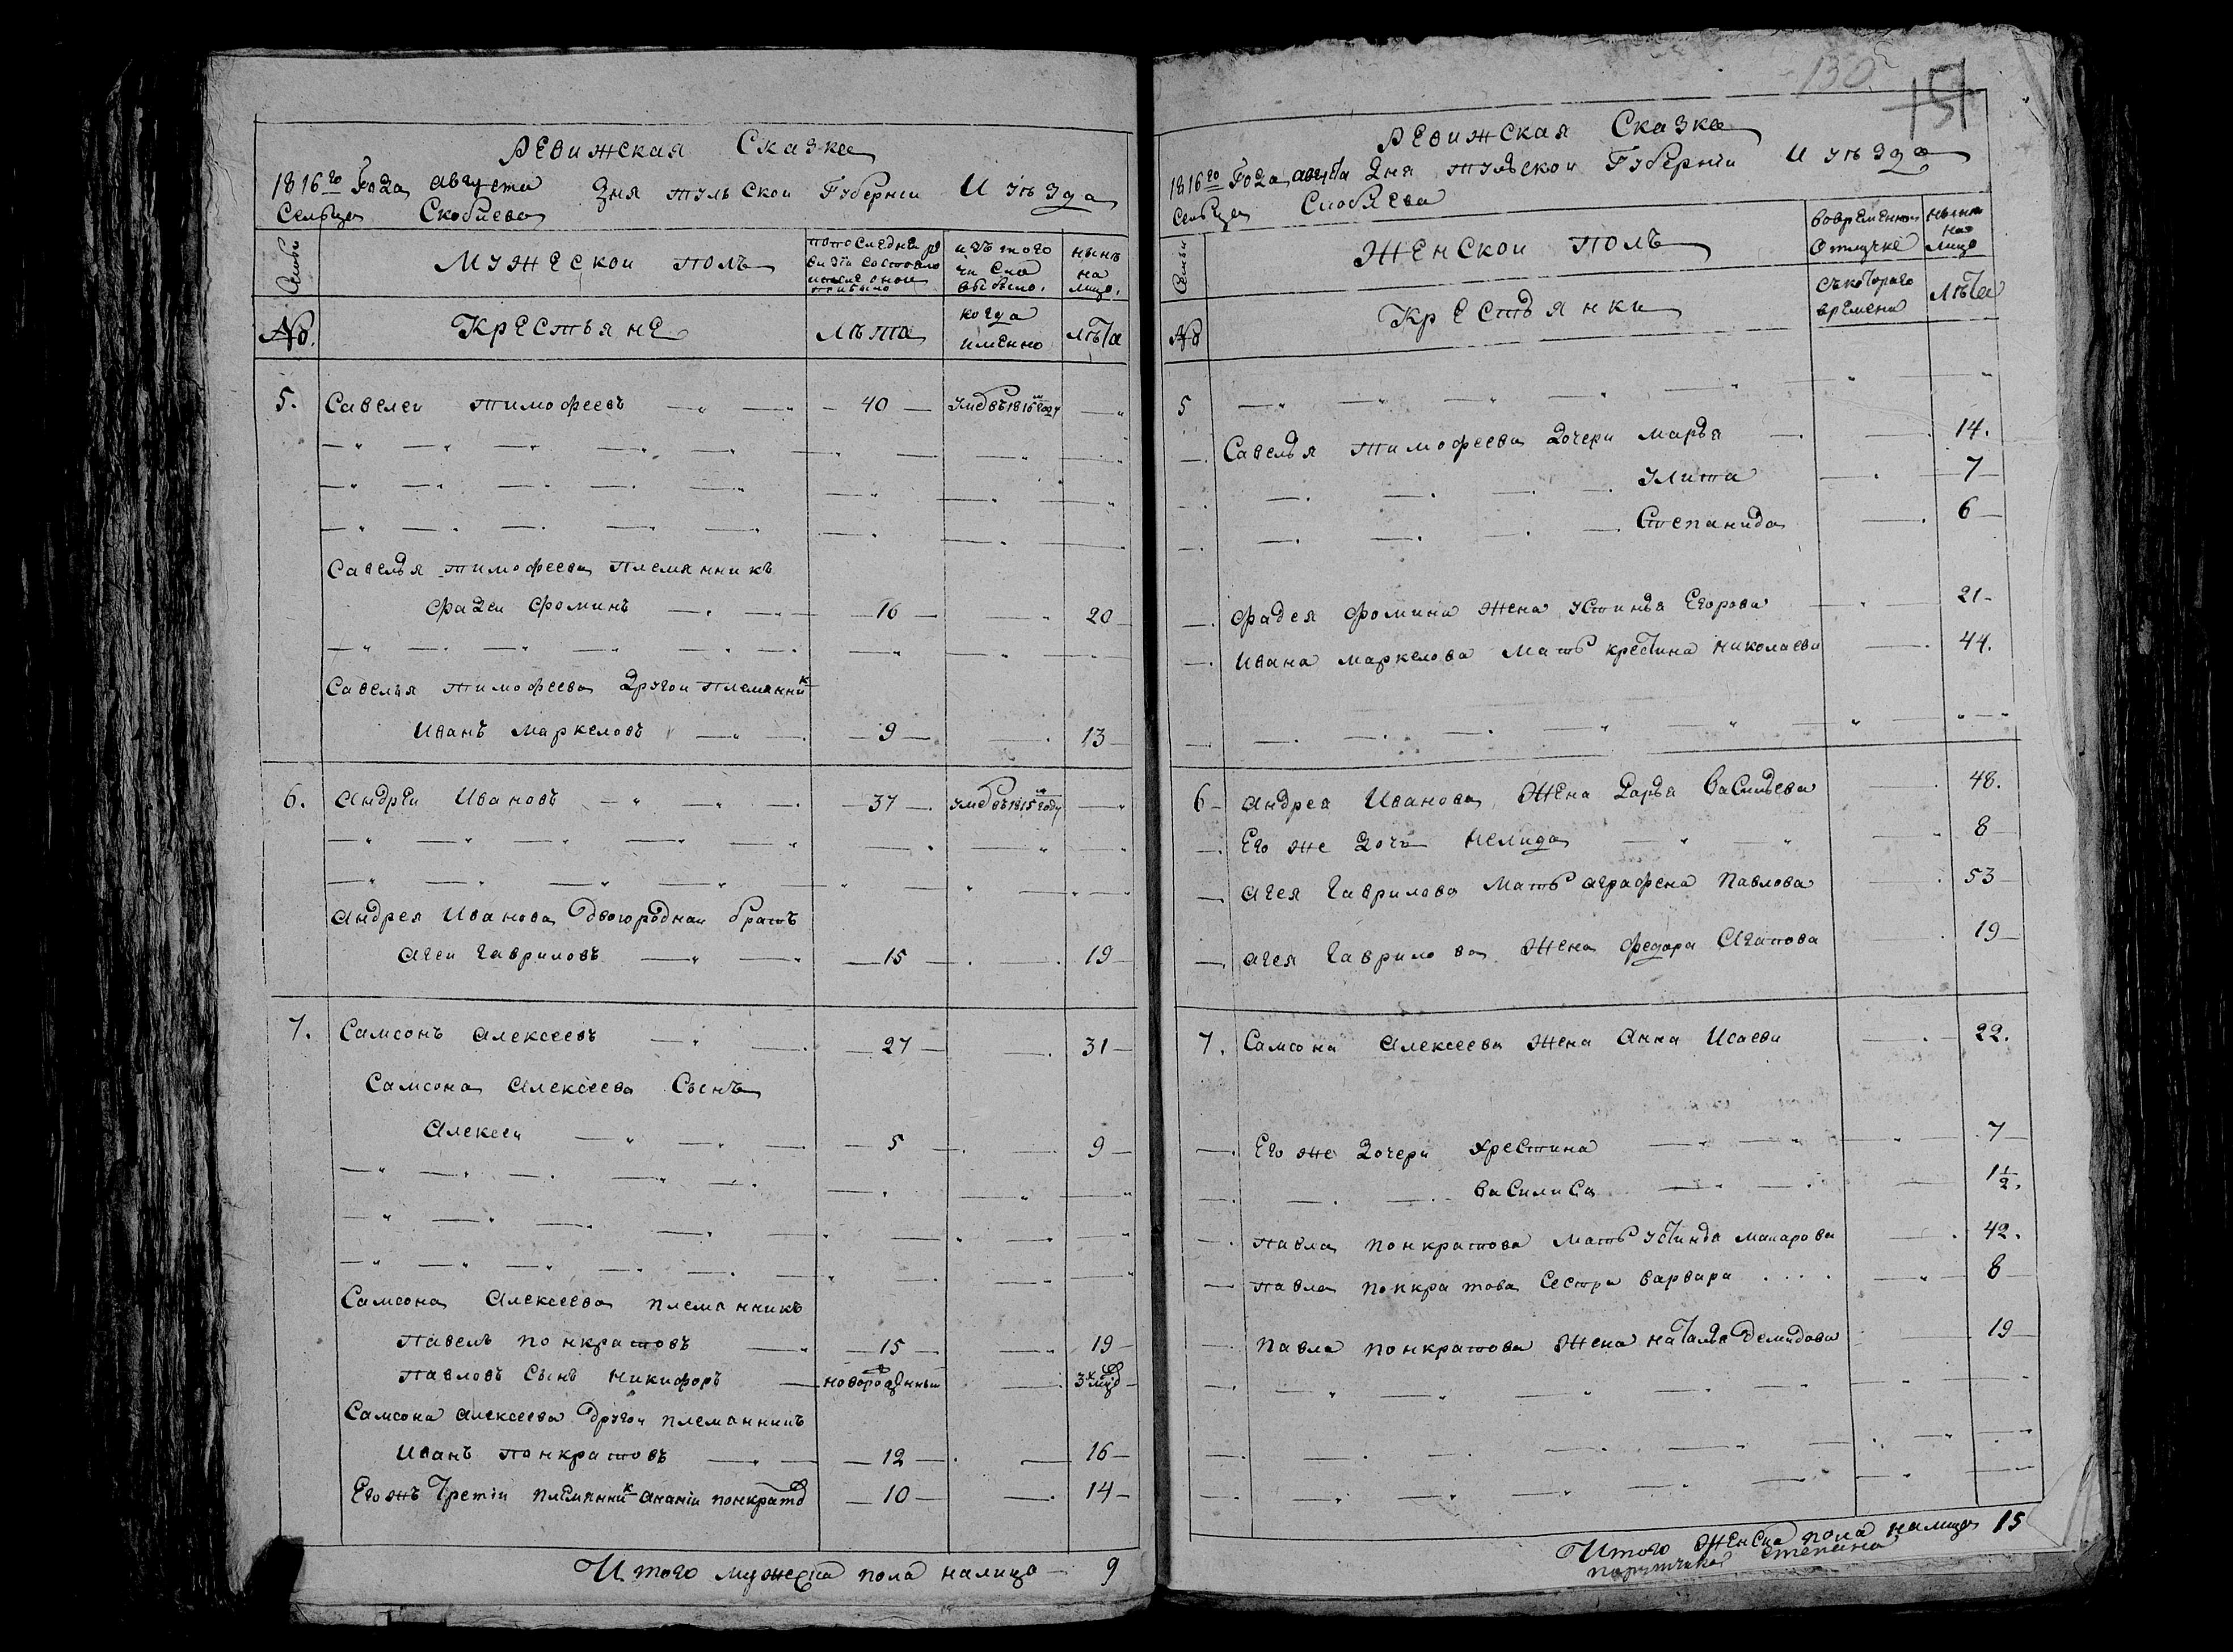 Ревижская Сказка
1816го Года августа дня тульской Губерніи И уѣзда
Сельца Скобѣева
Семьи
Мужеской полъ
изъ того числа выбыло.
нынѣ на лицо.
№.
Крестьяне
лѣта
когда именно
лѣта
5. Савелеи тимофеевъ 40 умебъ1816м году
Савелья тимофеева племянникъ
фадеи фоминъ 16 20
Савелья тимофеева другои племянникъ
Иванъ маркеловъ 9 13
6. андреи Ивановъ 37 умебъ1815м году
андрея Иванова двоюроднаи братъ
агеи гавриловъ 15 19
7. Самсонъ алексеевъ 27 31
Самсона алексеева Сынъ
алексеи 5 9
Самсона алексеева племянникъ
павелъ понкратовъ 15 19
павловъ Сынъ никифоръ новорожденныи 3х
Самсона алексеева другои племянникъ
Иванъ понкратовъ 12 16
Его жъ третіи племянникъ ананіи понкратовъ 10 14
Итого мужеска пола налицо 9
130
151
Ревижская Сказка
1816го Года августа дня тульской Губерніи И уѣзда
Сельца Скобѣева
Семьи
Женской полъ
вовременнои отлучке
нынѣ на лицо
№
Крестьянки
съкотораго времени
лѣта
5
Савелья тимофеева дочери марья 14.
улита 7
Степанида 6
фадея фомина жена устинья Егорова 21
Ивана маркелова мать крестина николаева 44.
6 андрея Иванова жена дарья васильева 48.
Его же дочь нелида 8
агея гаврилова мать аграфена павлова 53
агея гаврилова жена федора агапова 19
7. Самсона алексеева жена анна Исаева 22.
Его же дочери хрестина 7
василиса 1½.
павла понкратова мать устинья макарова 42.
павла понкратова Сестра варвара 8
павла понкратова жена наталья демидова 19
Итого женска пола налицо 15
порутчика степана